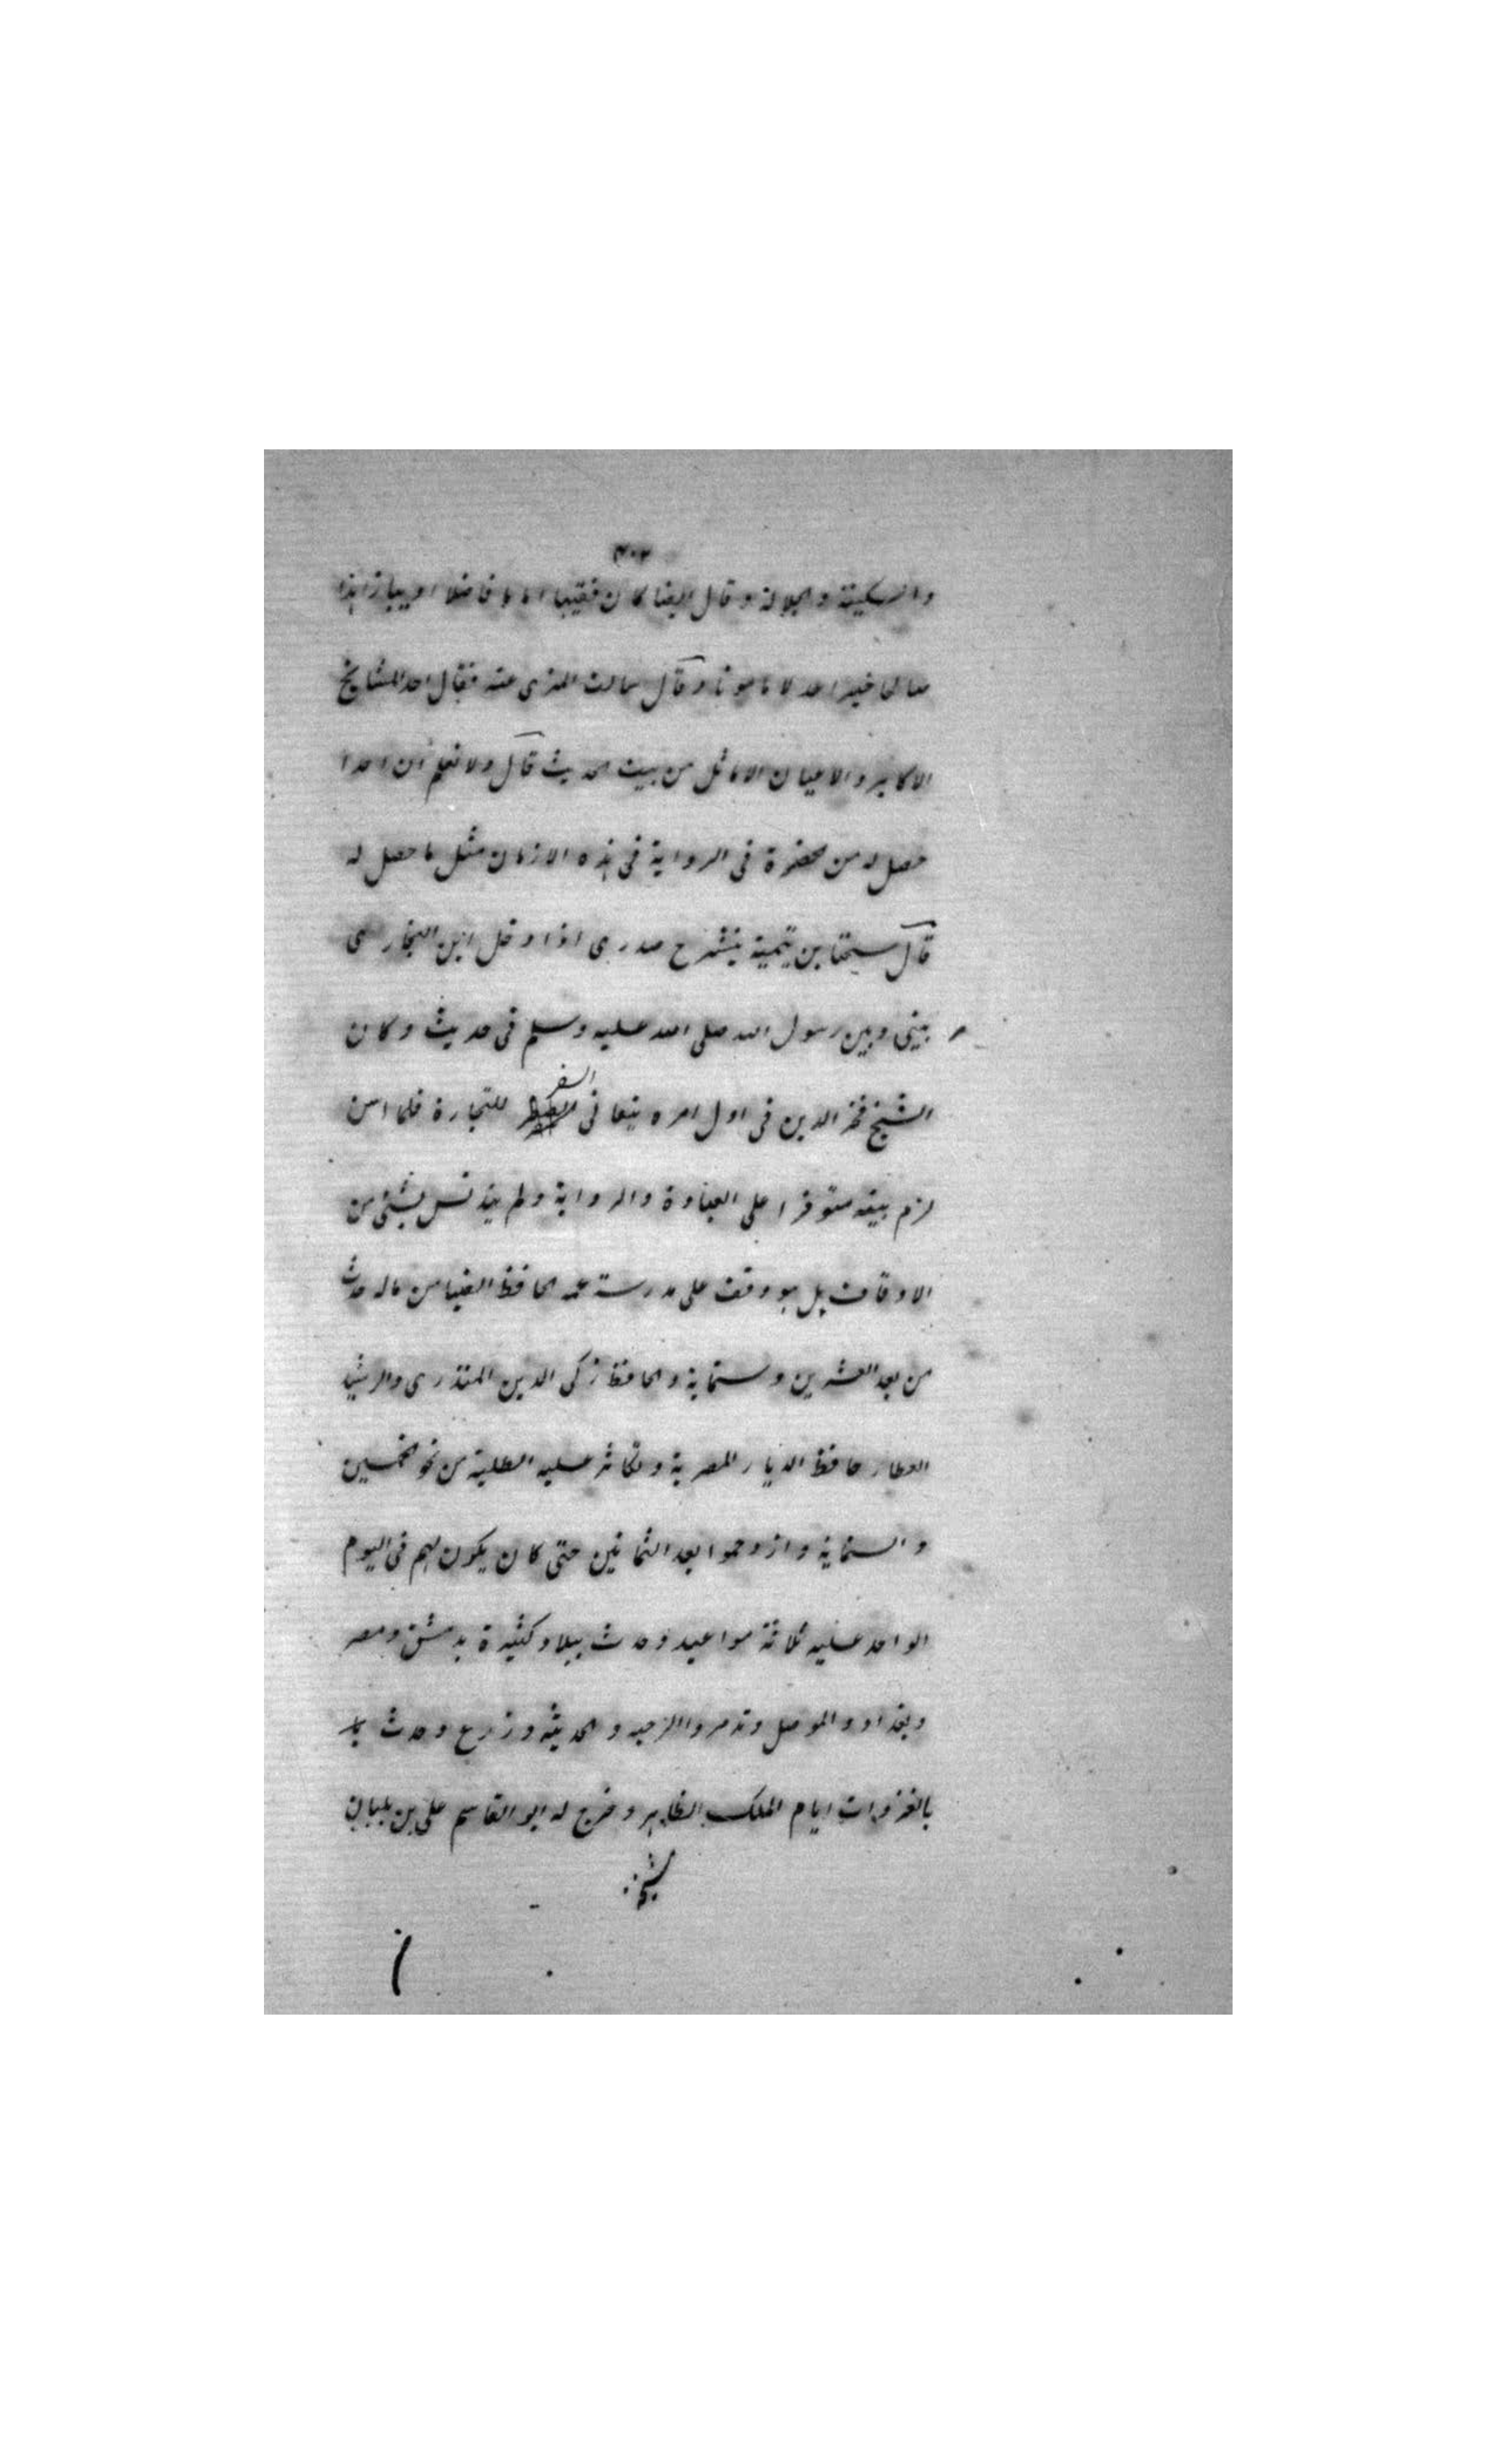 ٣٠٢
والسكينة والجلالة وقال ايضا كان فقيها اماما فاضلا اديبا زاهدا
صالحا خيرا عدلا مامونا وقال سالت المزى عنه فقال احد المشايخ
الاكابر والاعيان الاماثل من بيت الحديث قال ولا نعلم ان احدا
حصل له من الحظوة فى الرواية فى هذه الازمان مثل ما حصل له
قال شيخنا ابن تيمية ينشرح صدرى اذا ادخلت ابن البخارى
بينى وبين رسول الله صلى الله عليه وسلم فى حديث وكان
الشيخ فخر الدين فى اول امره يتعانى السفر للتجارة فلما اسن
لزم بيته متوفرا على العبادة والرواية ولم يتدنس بشئ من
الاوقاف بل هو وقف على مدرسة عمه الحافظ الضيا من ماله حدث
من بعد العشرين وستماية والحافظ زكى الدين المنذرى والرشيد
العطار حافظ الديار المصرية وتكاثر عليه الطلبة من نحو الخمسين
والستماية وازدحموا بعد الثمانين حتى كان يكون لهم فى اليوم
الواحد عليه ثلاثة مواعيد وحدث ببلاد كثيرة بدمشق ومصر
وبغداد والموصل وتدمر والرحبه والحديثه وزرع وحدث
بالغزوات ايام الملك الظاهر وخرج له ابو القاسم على بن بلبان